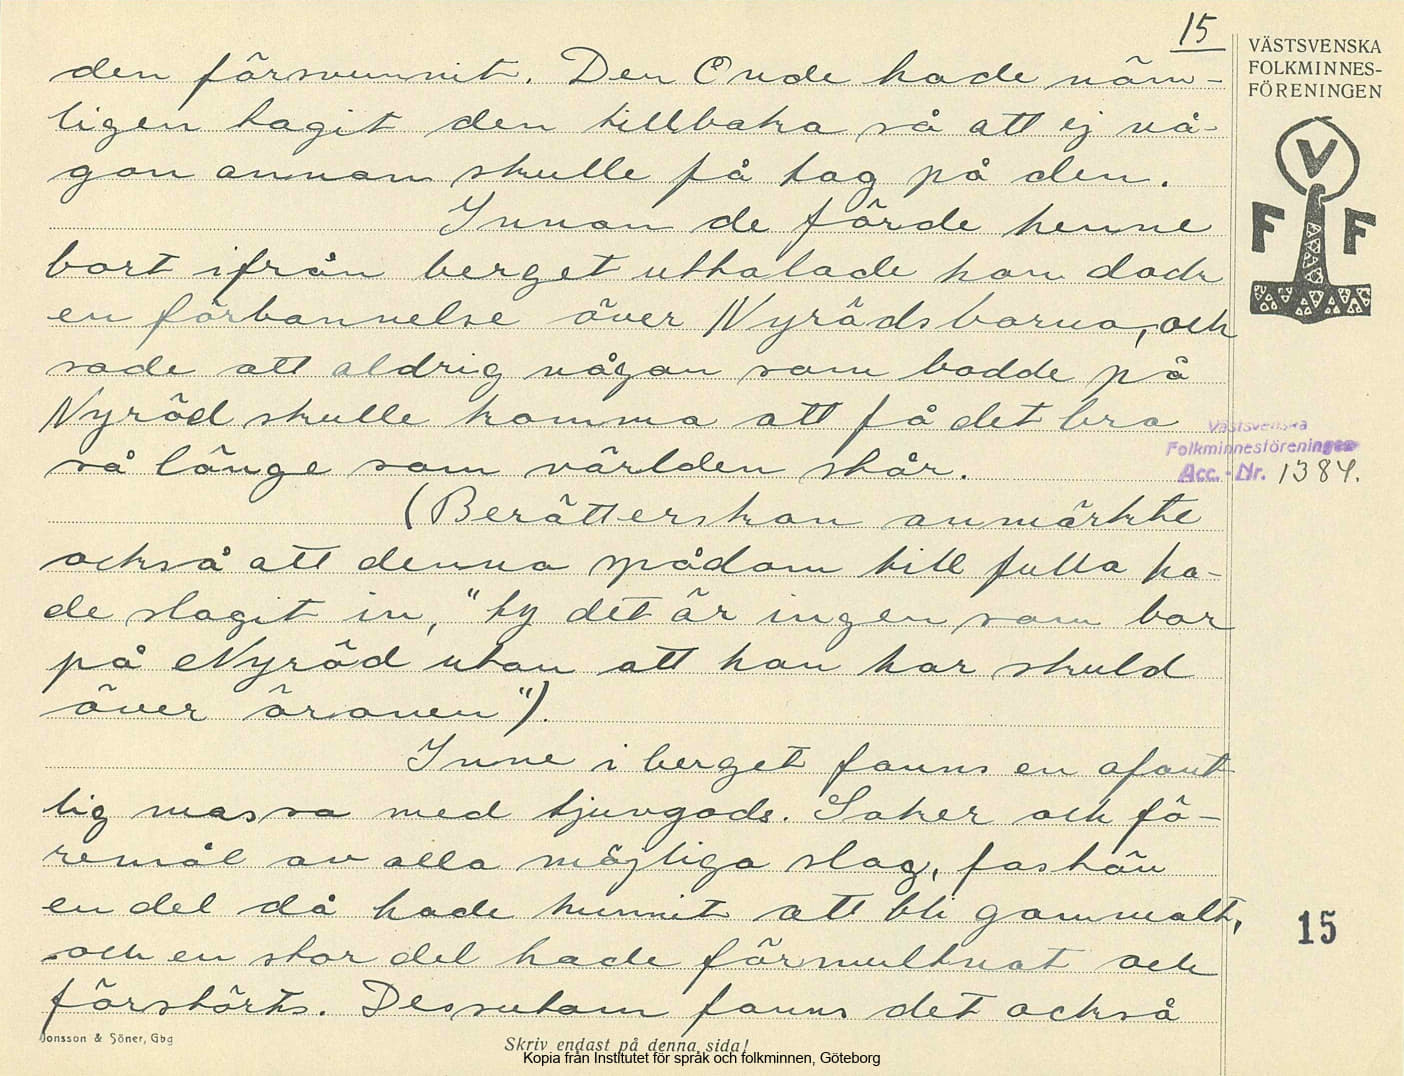 15
den försvunnit. Den Onde hade näm-
ligen tagit den tillbaka så att ej nå-
gon annan skulle få tag på den.
Innan de förde henne
bort ifrån berget uttalade hon dock
en förbannelse över Nyrödsborna, och
sade att aldrig någon som bodde på
Nyröd skulle komma att få det bra
så länge som världen står.
(Berätterskan anmärkte
också att denna spådom till fullo ha-
de slagit in, "ty det är ingen som bor
på Nyröd utan att han har skuld
över öronen").
Inne i berget fanns en ofant
lig massa med tjuvgods. Saker och fö-
remål av alla möjliga slag, fastän
en del då hade hunnit att bli gammalt,
och en stor del hade förmultnat och
förstörts. Dessutom fanns det också
VÄSTSVENSKA
FOLKMINNES-
FÖRENINGEN
V
F F
Västsvenska
Folkminnesföreningen
Acc. - Nr. 1384.
15
Jonsson & Söner, Gbg
Skriv endast på denna sida!
Kopia från Institutet för språk och folkminnen, Göteborg